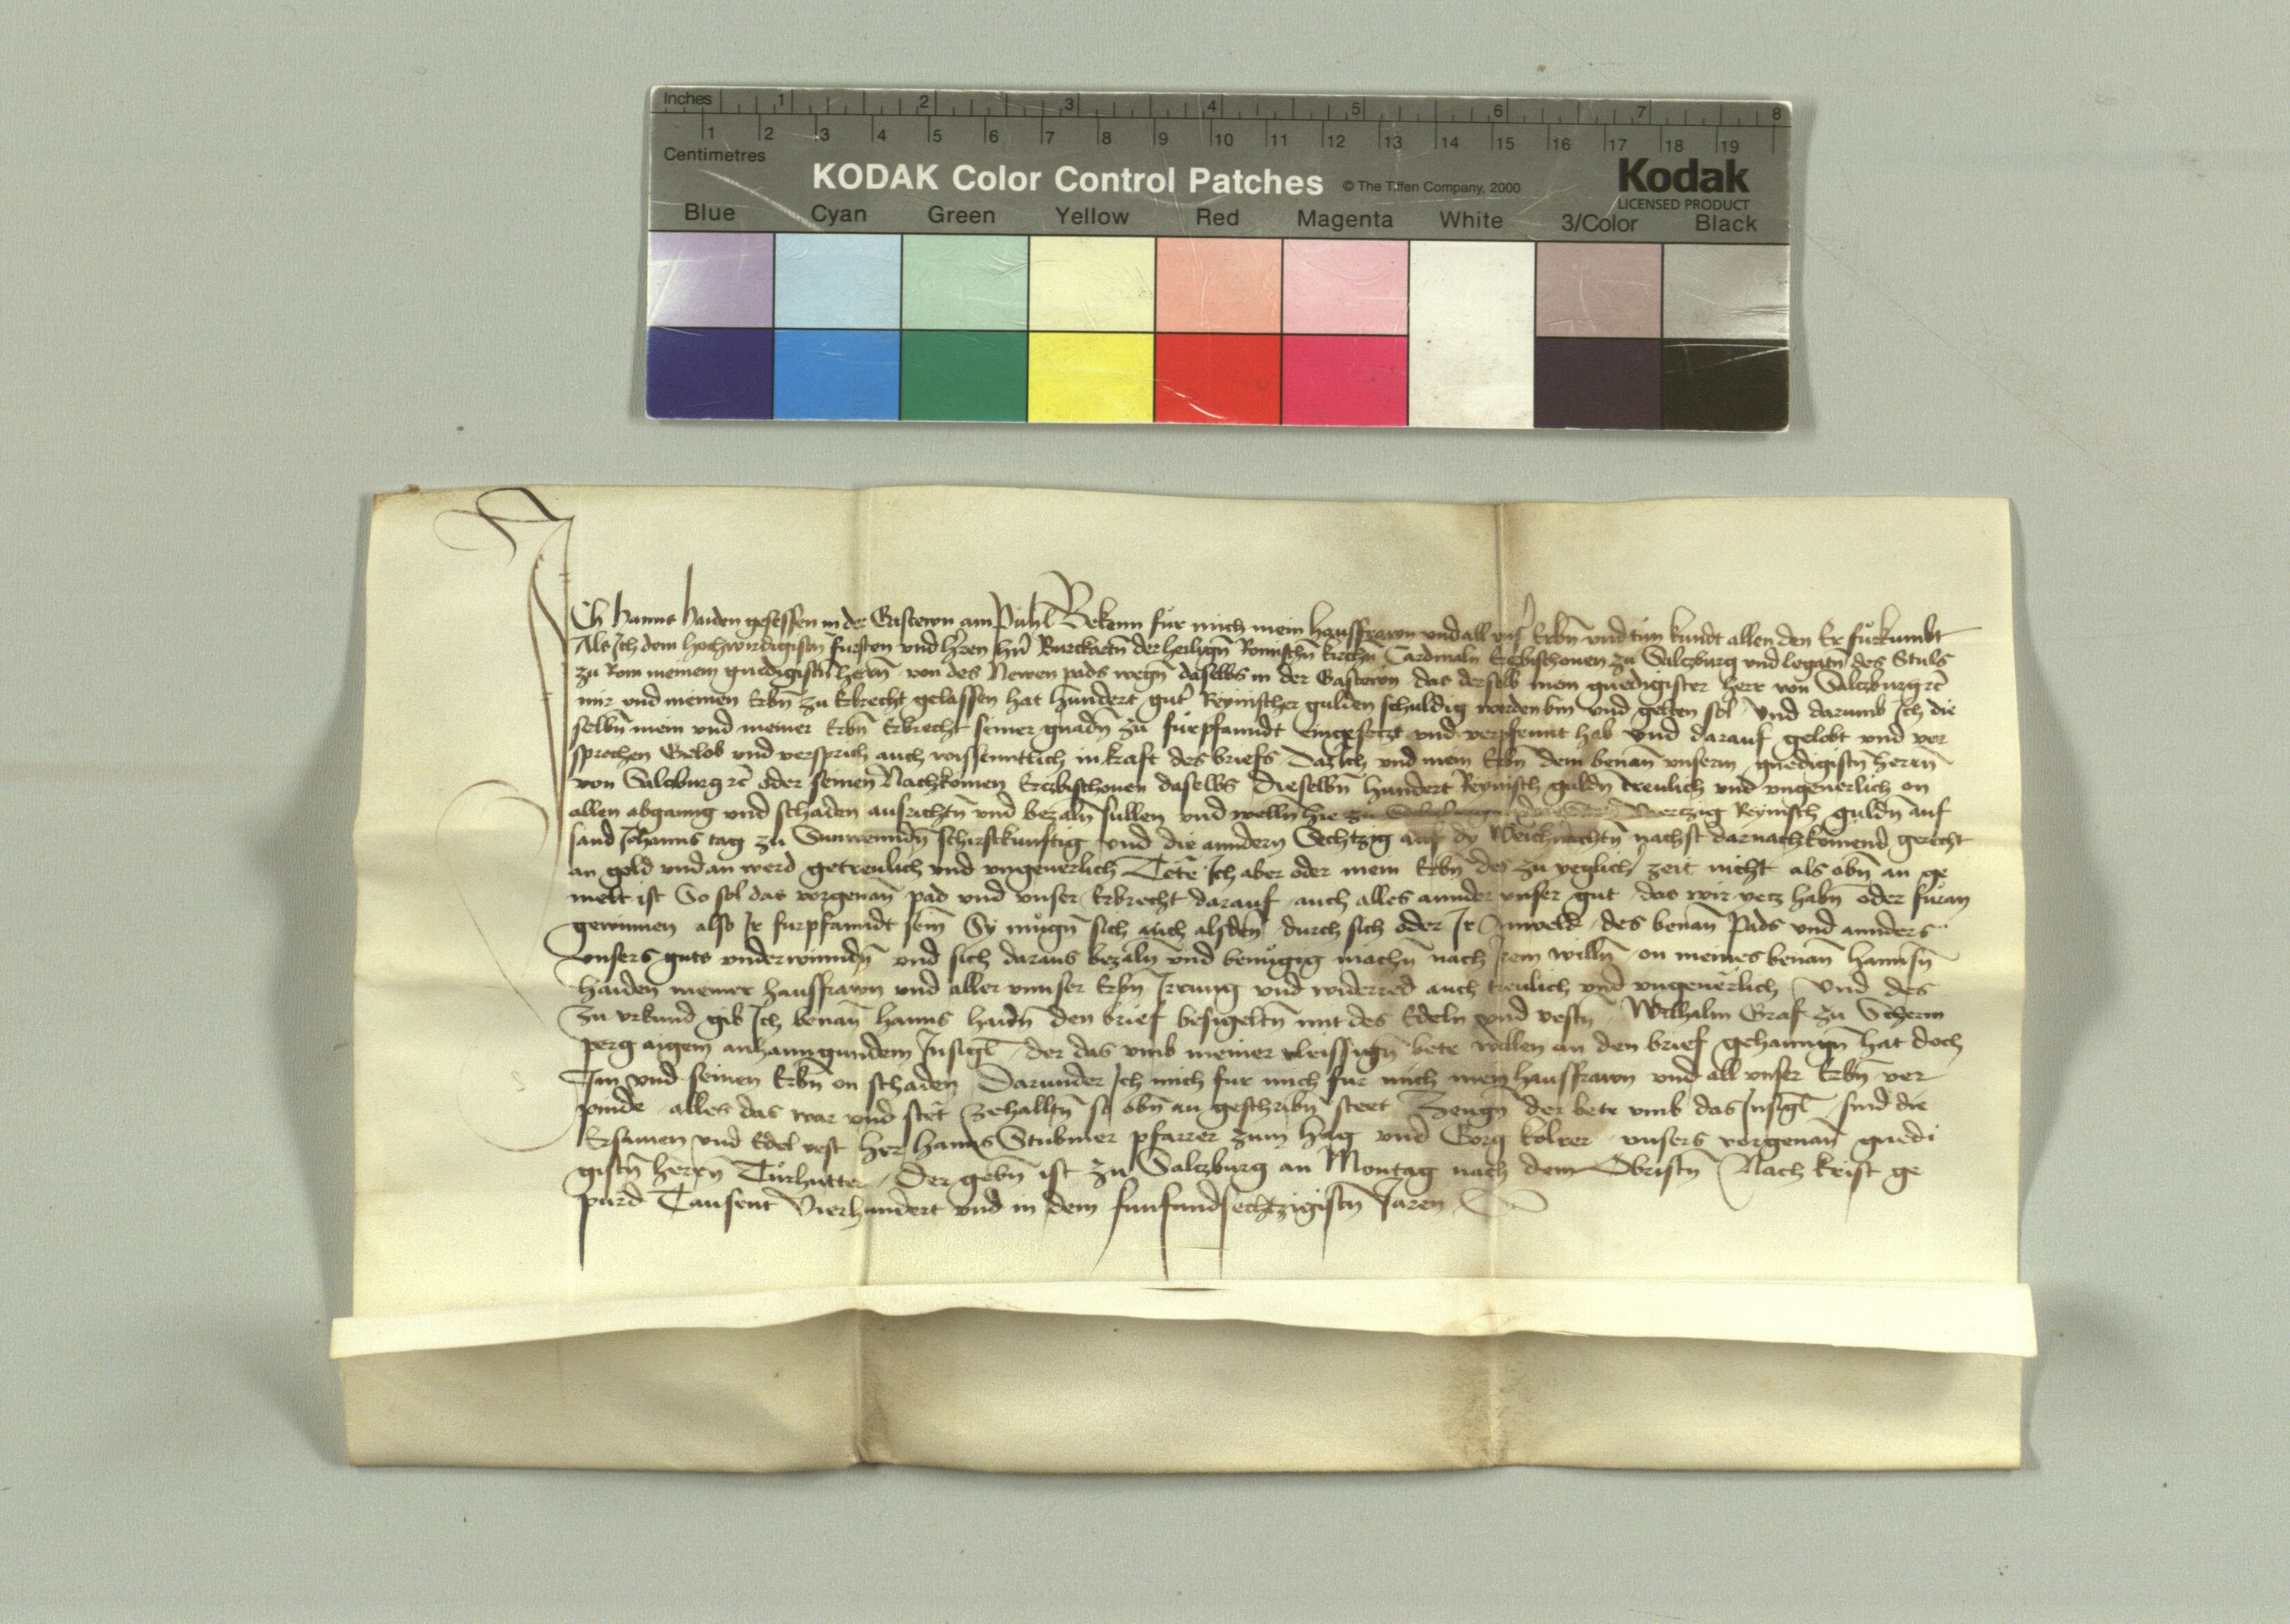 Inches 1 2 3 4 5 6 7 8
1 2 3 4 5 6 7 8 9 10 11 12 13 14 15 16 17 18 19
Centimetres
KODAK Color Control Patches © The Tiffen Company, 2000 Kodak
LICENSED PRODUCT
Blue Cyan Green Yellow Red Magenta White 3/Color Black
ICh Hanns Haiden gesessen in der Gastewn am Pühl Bekenn für mich mein hausfrawn und all uns̉ Erbn̄ und tün kundt allen den Er fürkumbt
Als Ich dem hochwirdigistn̄ fursten und hren̄ hn̄ Burckartn̄ der heilign̄ Romischn̄ kirchn̄ Cardinaln Erczbischouen zu Salczburg und legatn̄ des Stuls
zu Rom meinem gnedigistn̄ herrn̄ von des Newen pads wegn̄ daselbs in der Gastewn das derselb mein gnedigister herr von Salczburg rc̄
mir und meinen Erbn̄ zu Erbrecht gelassen hat hundert gut̉ Reynischer gulden schuldig worden bin und gelten sol Und darumb Ich die
selbn̄ mein und meiner Erbn̄ Erbrecht seiner gnadn̄ zu fürpfanndt eingesetzt und verpfennt hab und darauf gelobt und ver
sprochen Gelob und versprich auch wissenntlich in kraft des briefs Daz Ich und mein Erbn̄ dem benan̄ unserm gnedigistn̄ herrn̄
von Salczburg rc̄ oder seinen Nachkomen Erczbischouen daselbs dieselbn̄ hundert Reynisch guldn̄ treulich und ungeuerlich on
allen abganng und schaden ausrichtn̄ und bezaln̄ sullen und welln̄ hie zu Salczburg Viertzig Reynisch guldn̄ auf
sand Johanns tag zu Sunnwenndn̄ schirstkunftig und die anndern Sechtzig auf dy Weichnachtn̄ nachst darnachkomend gerecht
an gold und an werd getreulich und ungeuerlich Tete Ich aber oder mein Erbn̄ des zu yeglich̉ zeit nicht als obn̄ an ge
melt ist So sol das vorgenan̄ pad und unser Erbrecht darauf auch alles annder unser gut das wir yetz habn̄ oder furan
gewinnen also Ir furpfanndt sein Sy mugn̄ sich auch alsden̄ durch sich oder Ir Anweld des benan̄ Pads und annders
unsers guts underwinndn̄ und sich daraus bezaln̄ und benügig machn̄ nach Irem willn̄ on meines benan̄ Hannsn̄
Haiden meiner hausfrawn und aller unnser Erbn̄ Irrung und widerred auch treulich und ungeuerlich Und des
zu urkund gib Ich benan̄ Hanns Haidn̄ den brief besigeltn̄ mit des Edeln und vestn̄ Wilhalm Graf zu Schern
perg aigem anhanngundem Insigl̄ der das umb meiner vleissign̄ bete willen an den brief gehanngn̄ hat doch
Im und seinen Erbn̄ on schaden Darunder Ich mich fur mich fur mich mein hausfrawn und all unser Erbn̄ ver
pinde alles das war und stet zehalltn̄ so obn̄ an geschribn̄ steet Zeugn̄ der bete umb das Insigl̄ sind die
Ersamen und Edel vest her Hanns Stubmer pfarrer zum Hag und Gorg Kolrer unsers vorgenan̄ gnedi
gistn̄ herrn̄ Türhutter Der gebn̄ ist zu Salczburg an Montag nach dem Obristn̄ Nach Krist ge
purd Tausent Vierhundert und in dem funfundsechtzigistn̄ Jaren